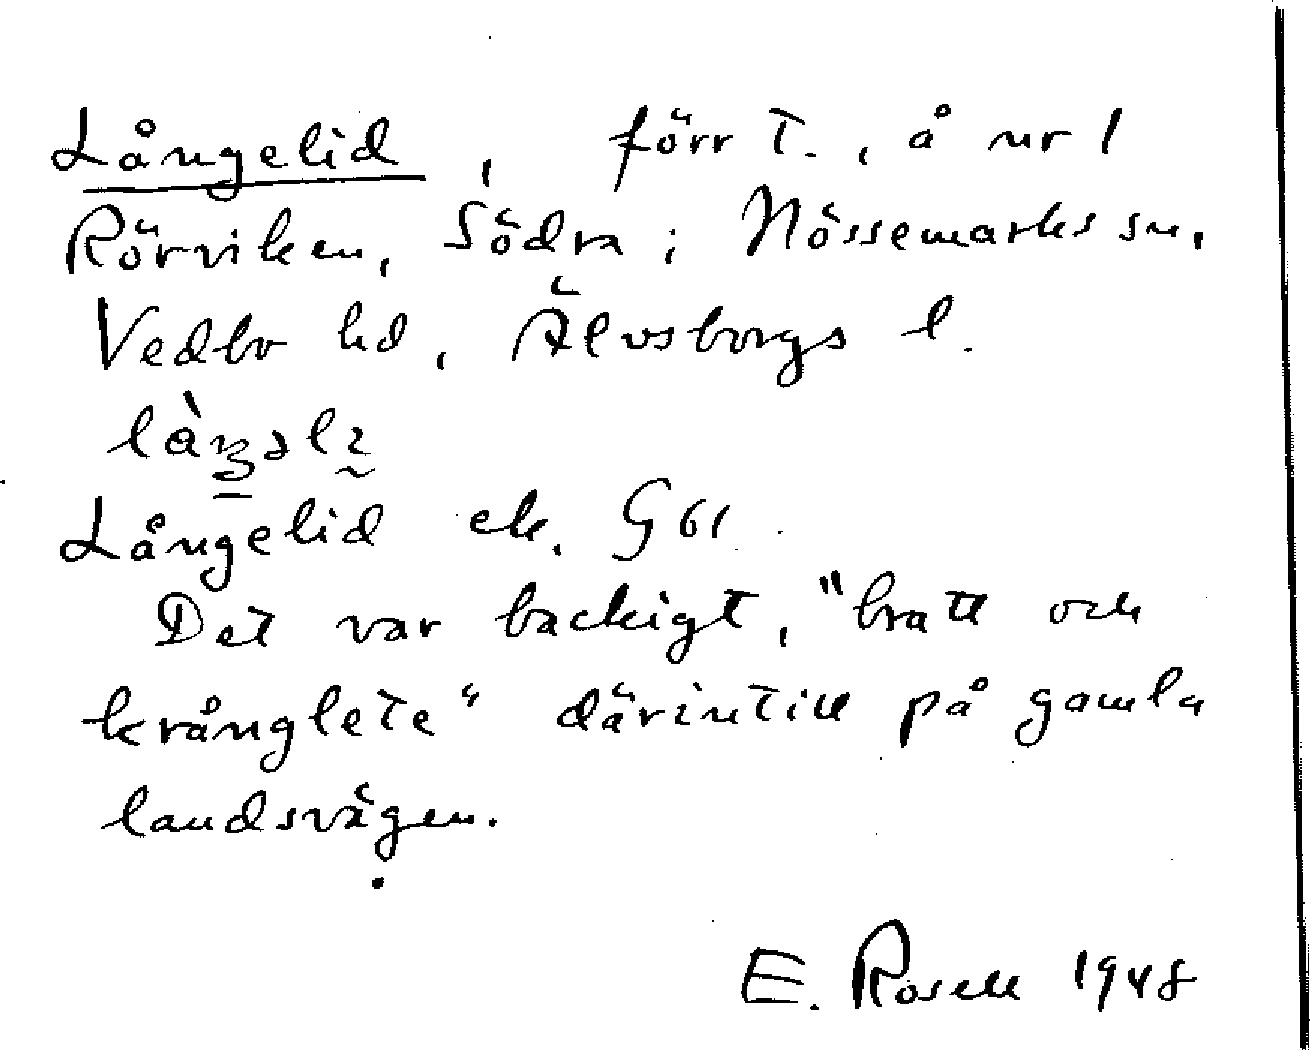 Långelid, förr t., å nr 1
Rörviken, Södra i Nössemarks sn,
Vedbo hd, Älvsborgs l.
Långelid ek. G 61.
Det var backigt, "bratt och
krånglete" därintill på gamla
landsvägen.
E. Rosell 1948